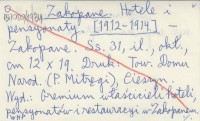 Zakopane. Hotele i
pensjonaty. [1912-1914] -
Zakopane. Ss. 31, il., okł.,
cm 12 x 19. Druk: Tow. Domu
Narod. (P. Mitręga), Cieszyn.
Wyd.: Gremium właścicieli hoteli
pensjonatów i restauracji w Zakopanem